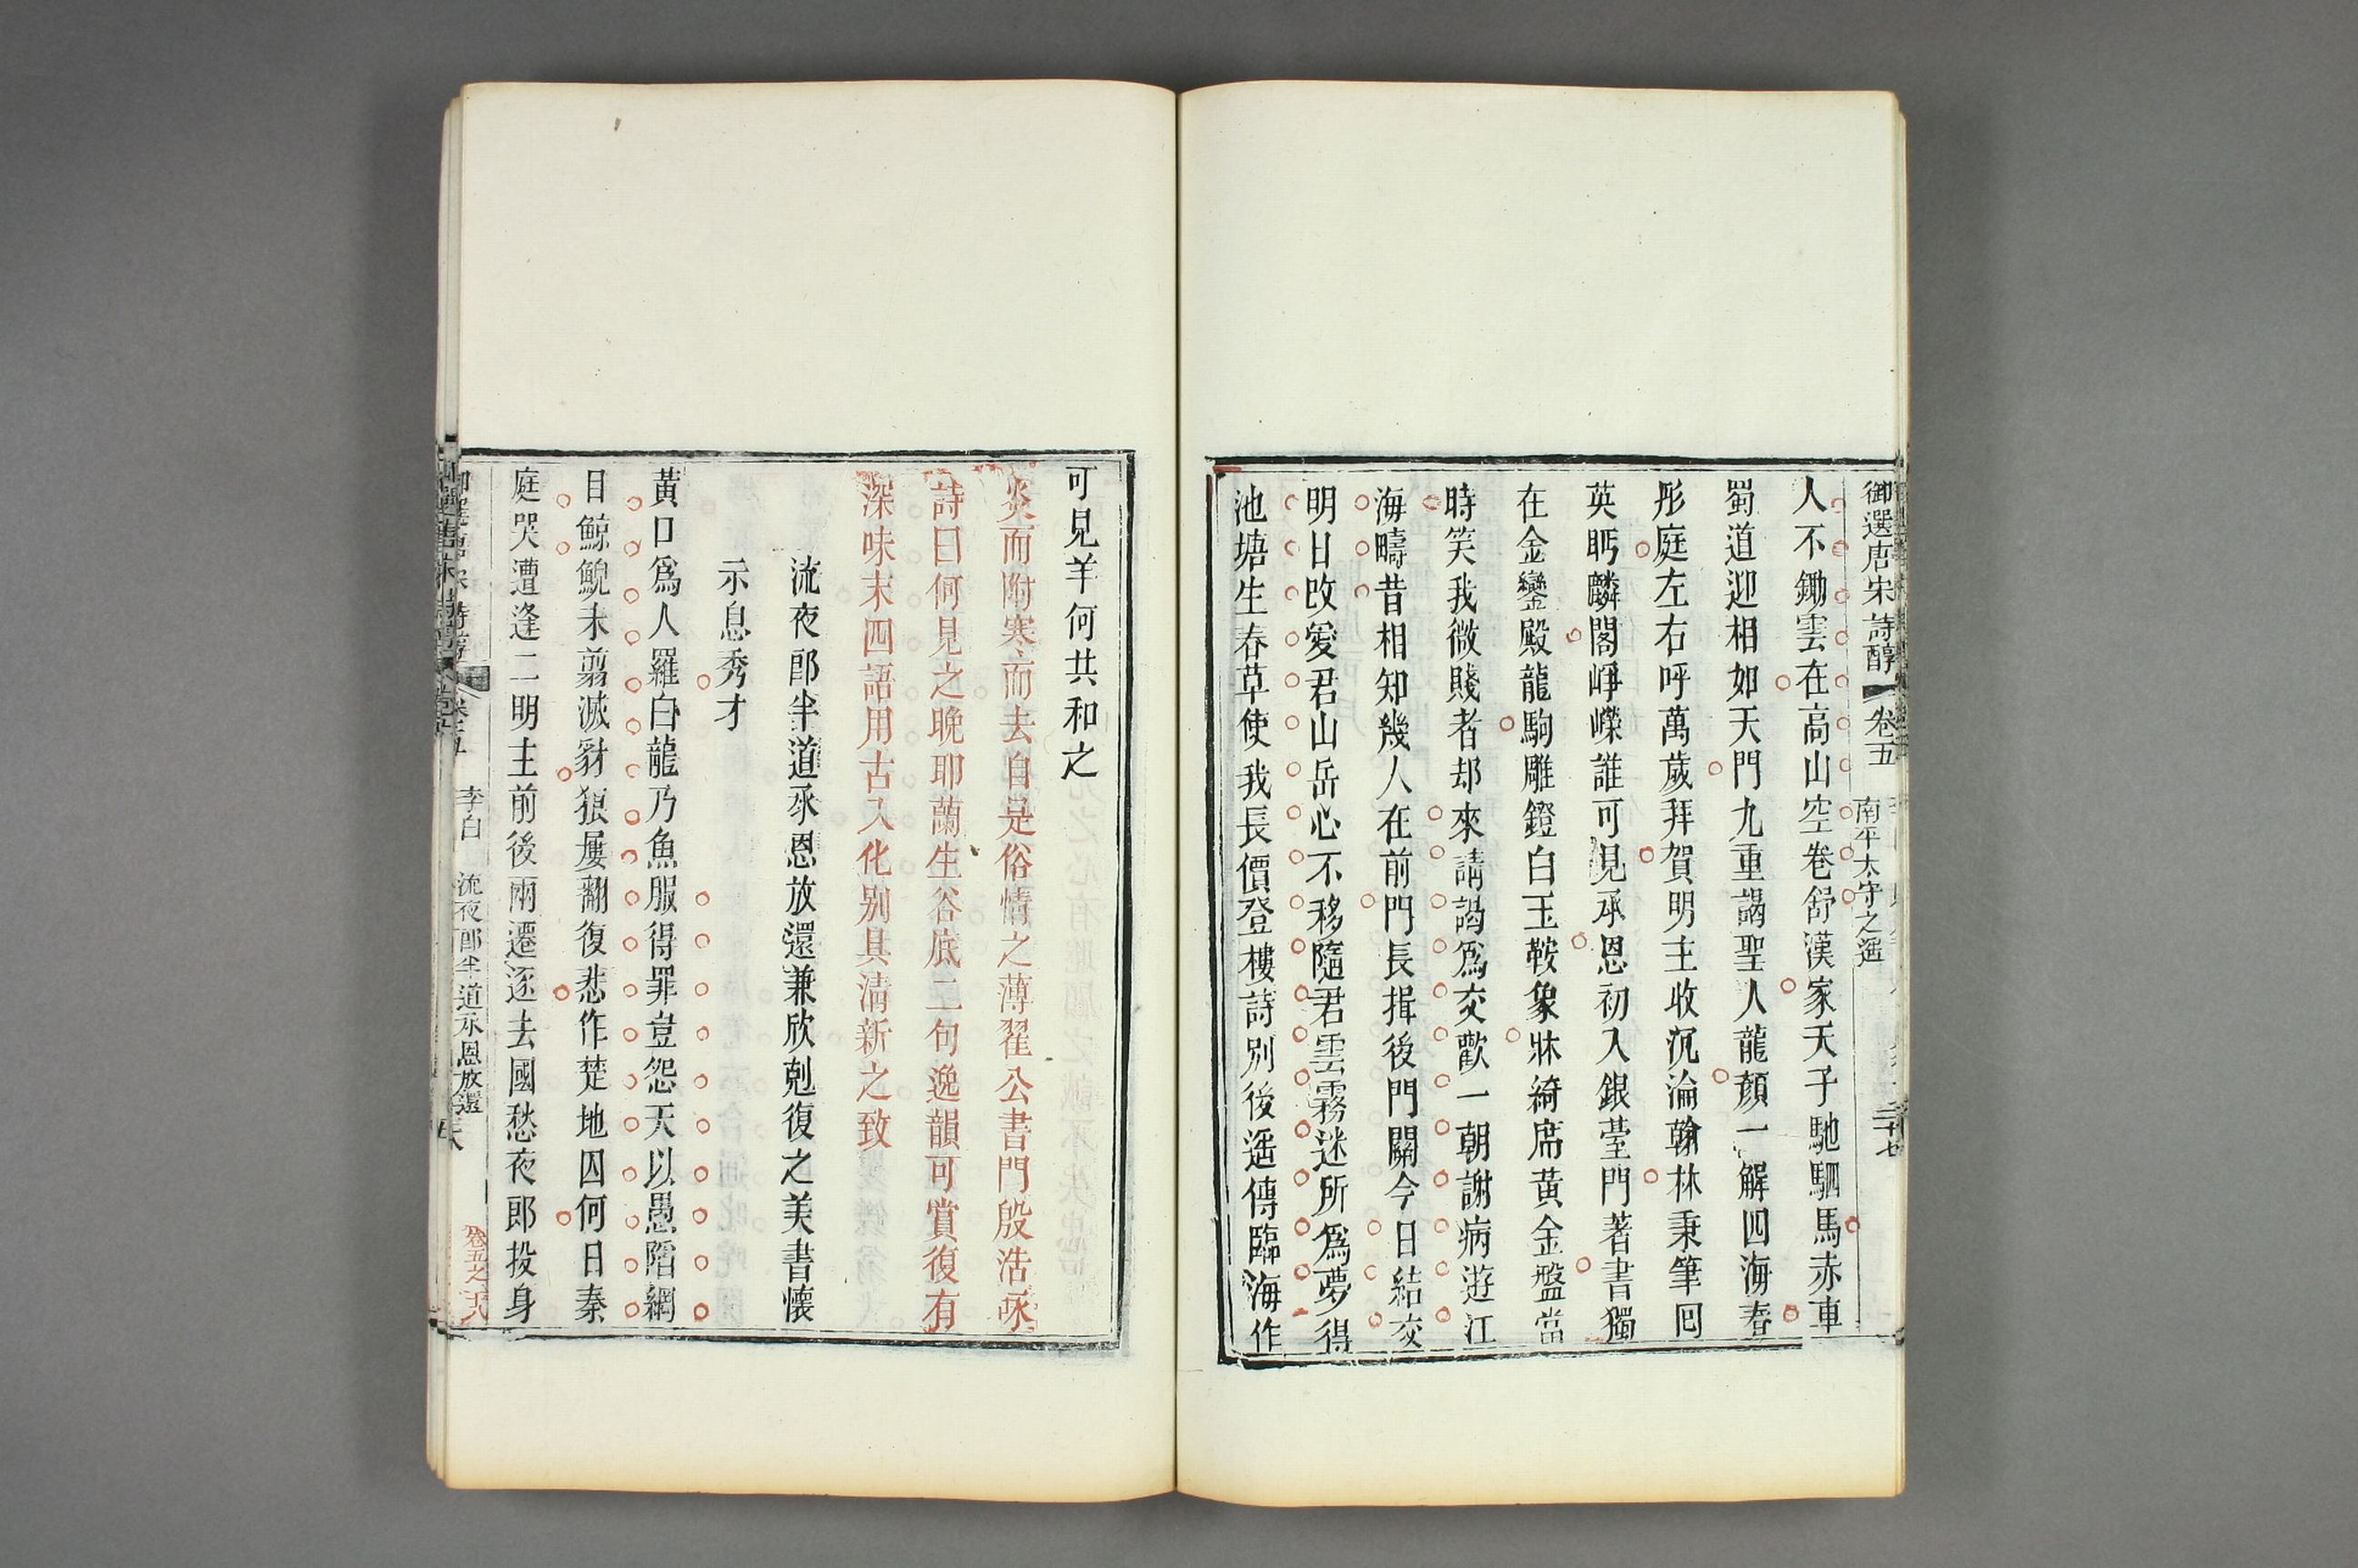 御選唐宋詩醇 卷五 南平太守之遥 二十七
人不鋤雲在高山空卷舒漢家天子馳駟馬赤車
蜀道迎相如天門九重謁聖人龍顏一解四海春
彤庭左右呼萬歲拜賀明主收沉淪翰林秉筆回
英眄麟閣崢嶸誰可見承恩初入銀臺門著書獨
在金鑾殿龍駒雕鐙白玉鞍象牀綺席黃金盤當
時笑我微賤者却來請謁為交歡一朝謝病遊江
海疇昔相知幾人在前門長揖後門關今日結交
明日改愛君山岳心不移隨君雲霧迷所為夢得
池塘生春草使我長價登樓詩別後遥傳臨海作
可見羊何共和之
炎而附寒而去自是俗情之薄翟公書門殷浩詠
詩曰何見之晚耶蘭生谷底二句逸韻可賞復有
深味末四語用古入化别具清新之致
流夜郎半道承恩放還兼欣剋復之美書懷
示息秀才
黃口為人羅白龍乃魚服得罪豈怨天以愚陷網
目鯨鯢未翦滅豺狼屢翻復悲作楚地囚何日秦
庭哭遭逢二明主前後兩遷逐去國愁夜郎投身
李白 流夜郎半道承恩放還
卷五之二十八